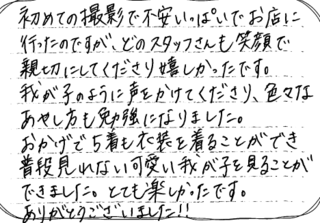 初めての撮影で不安いっぱいでお店に
行ったのですが、どのスタッフさんも笑顔で
親切にしてくださり嬉しかったです。
我が子のように声をかけてくださり、色々な
あやし方も勉強になりました。
おかげで5着も衣装を着ることができ
普段見れない可愛い我が子を見ることが
できました。とても楽しかったです。
ありがとうございました!!